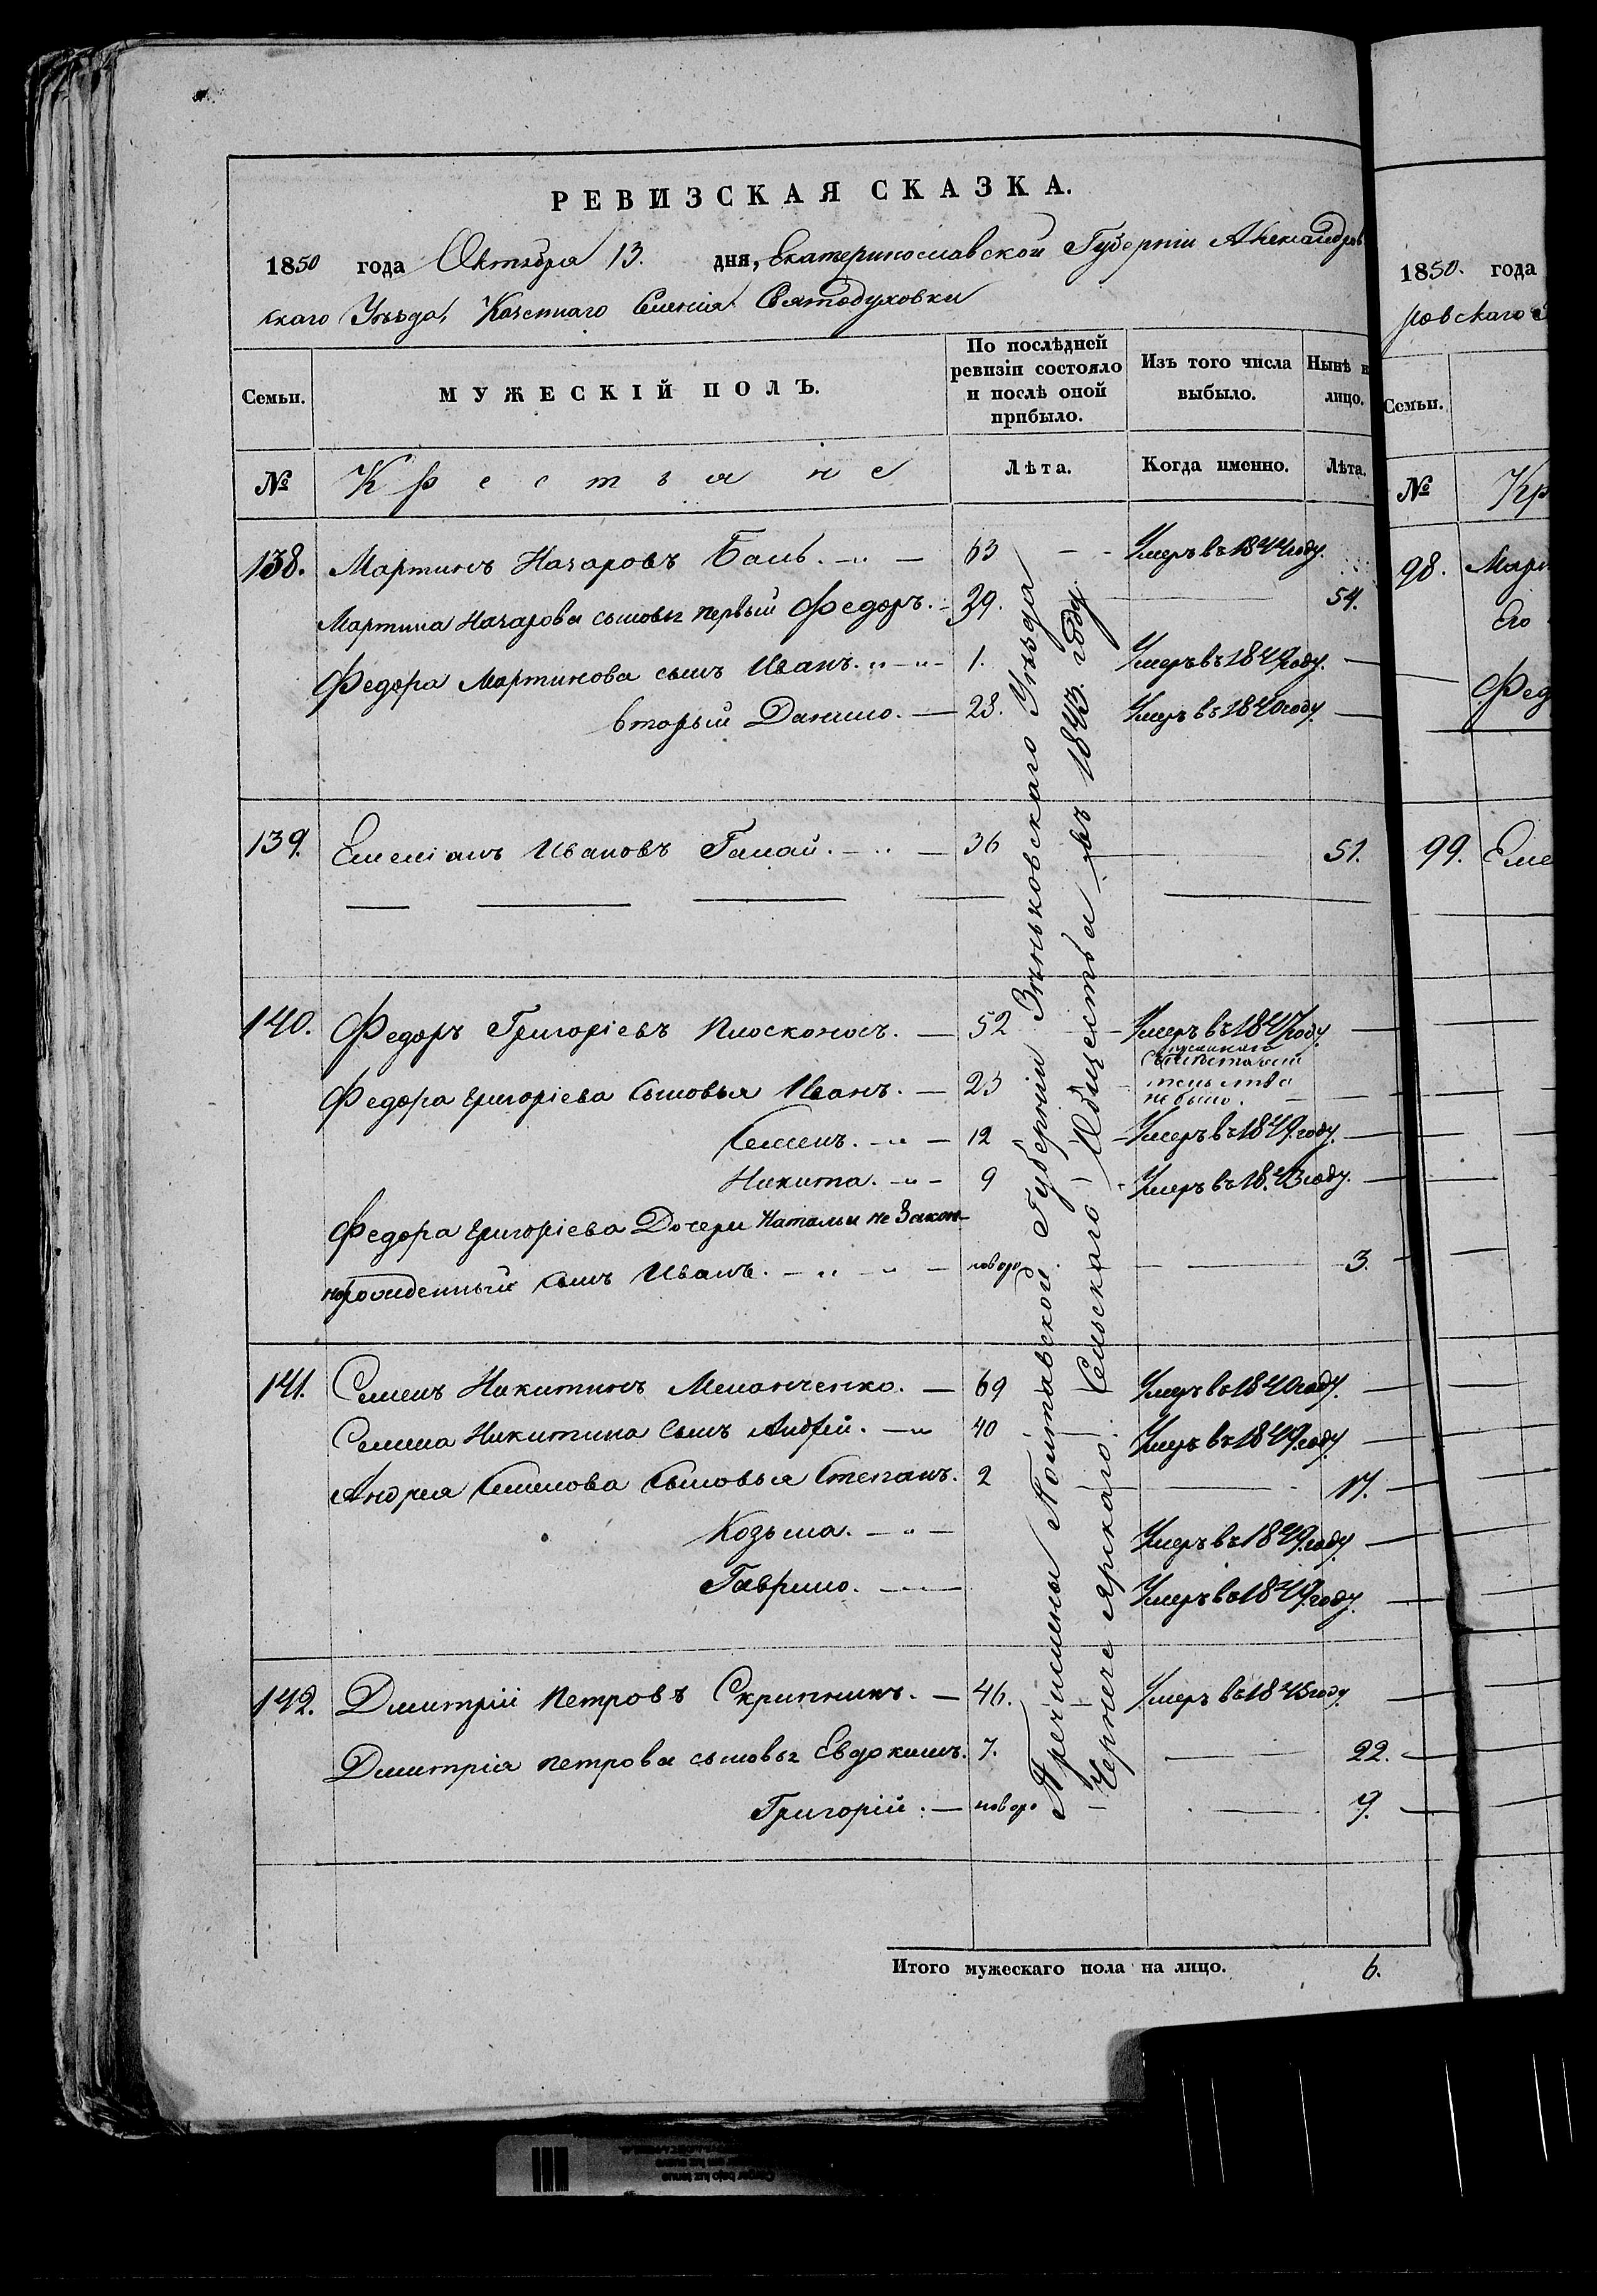 РЕВИЗСКАЯ СКАЗКА.
1850 года Октября 13. дня, Екатеринославской Губерніи Александров
скаго Уѣзда, Казеннаго Селенія Святодуховки
Семьи. МУЖЕСКІЙ ПОЛЪ. По послѣдней ревизіи состояло и послѣ оной прибыло. Изъ того числа выбыло. Нынѣ н лицо.
№ Крестьяне Лѣта. Когда именно. Лѣта.
138. Мартинъ Назаровъ Баль. 63 Умеръ въ 1844 году.
Мартина Назарова сыновья первый Федоръ. 39. 54.
Федора Мартинова сынъ Иванъ. 1. Умеръ въ 1849 году.
вторый Данило. 28. Умеръ въ 1840 году.
139. Емеліанъ Ивановъ Гамай. 36 51.
140. Федоръ Григоріевъ Плосконосъ. 52 Умеръ въ 1847 году
Федора Григоріева сыновья Иванъ. 23
не было.
Семенъ. 12 Умеръ въ 1849 году.
Никита. 9 Умеръ въ 1843 году.
Федора Григоріева Дочери Натальи не Закон-
норожденный сынъ Иванъ. новоро. 3.
141. Семенъ Никитинъ Меланченко. 69 Умеръ въ 1840 году.
Семена Никитина сынъ Андрей. 40 Умеръ въ 1849 году
Андрея Семенова сыновья Степанъ. 2 17.
Козьма. Умеръ въ 1849 году.
Гаврило. Умеръ въ 1849 году.
142. Дмитрій Петровъ Скрипникъ. 46. Умеръ въ 1845 году
Дмитрія Петрова сыновья Евдокимъ. 7. 22.
Григорій. новоро 9.
Причислены Полтавской Губерніи Зѣньковскаго Уѣзда
Сельскаго Общества въ 1843 году.
Итого мужескаго пола на лицо. 6.
1850. года
ровскаго
Семьи.
№ Кр
98. Март
Его
Фед
99. Еме